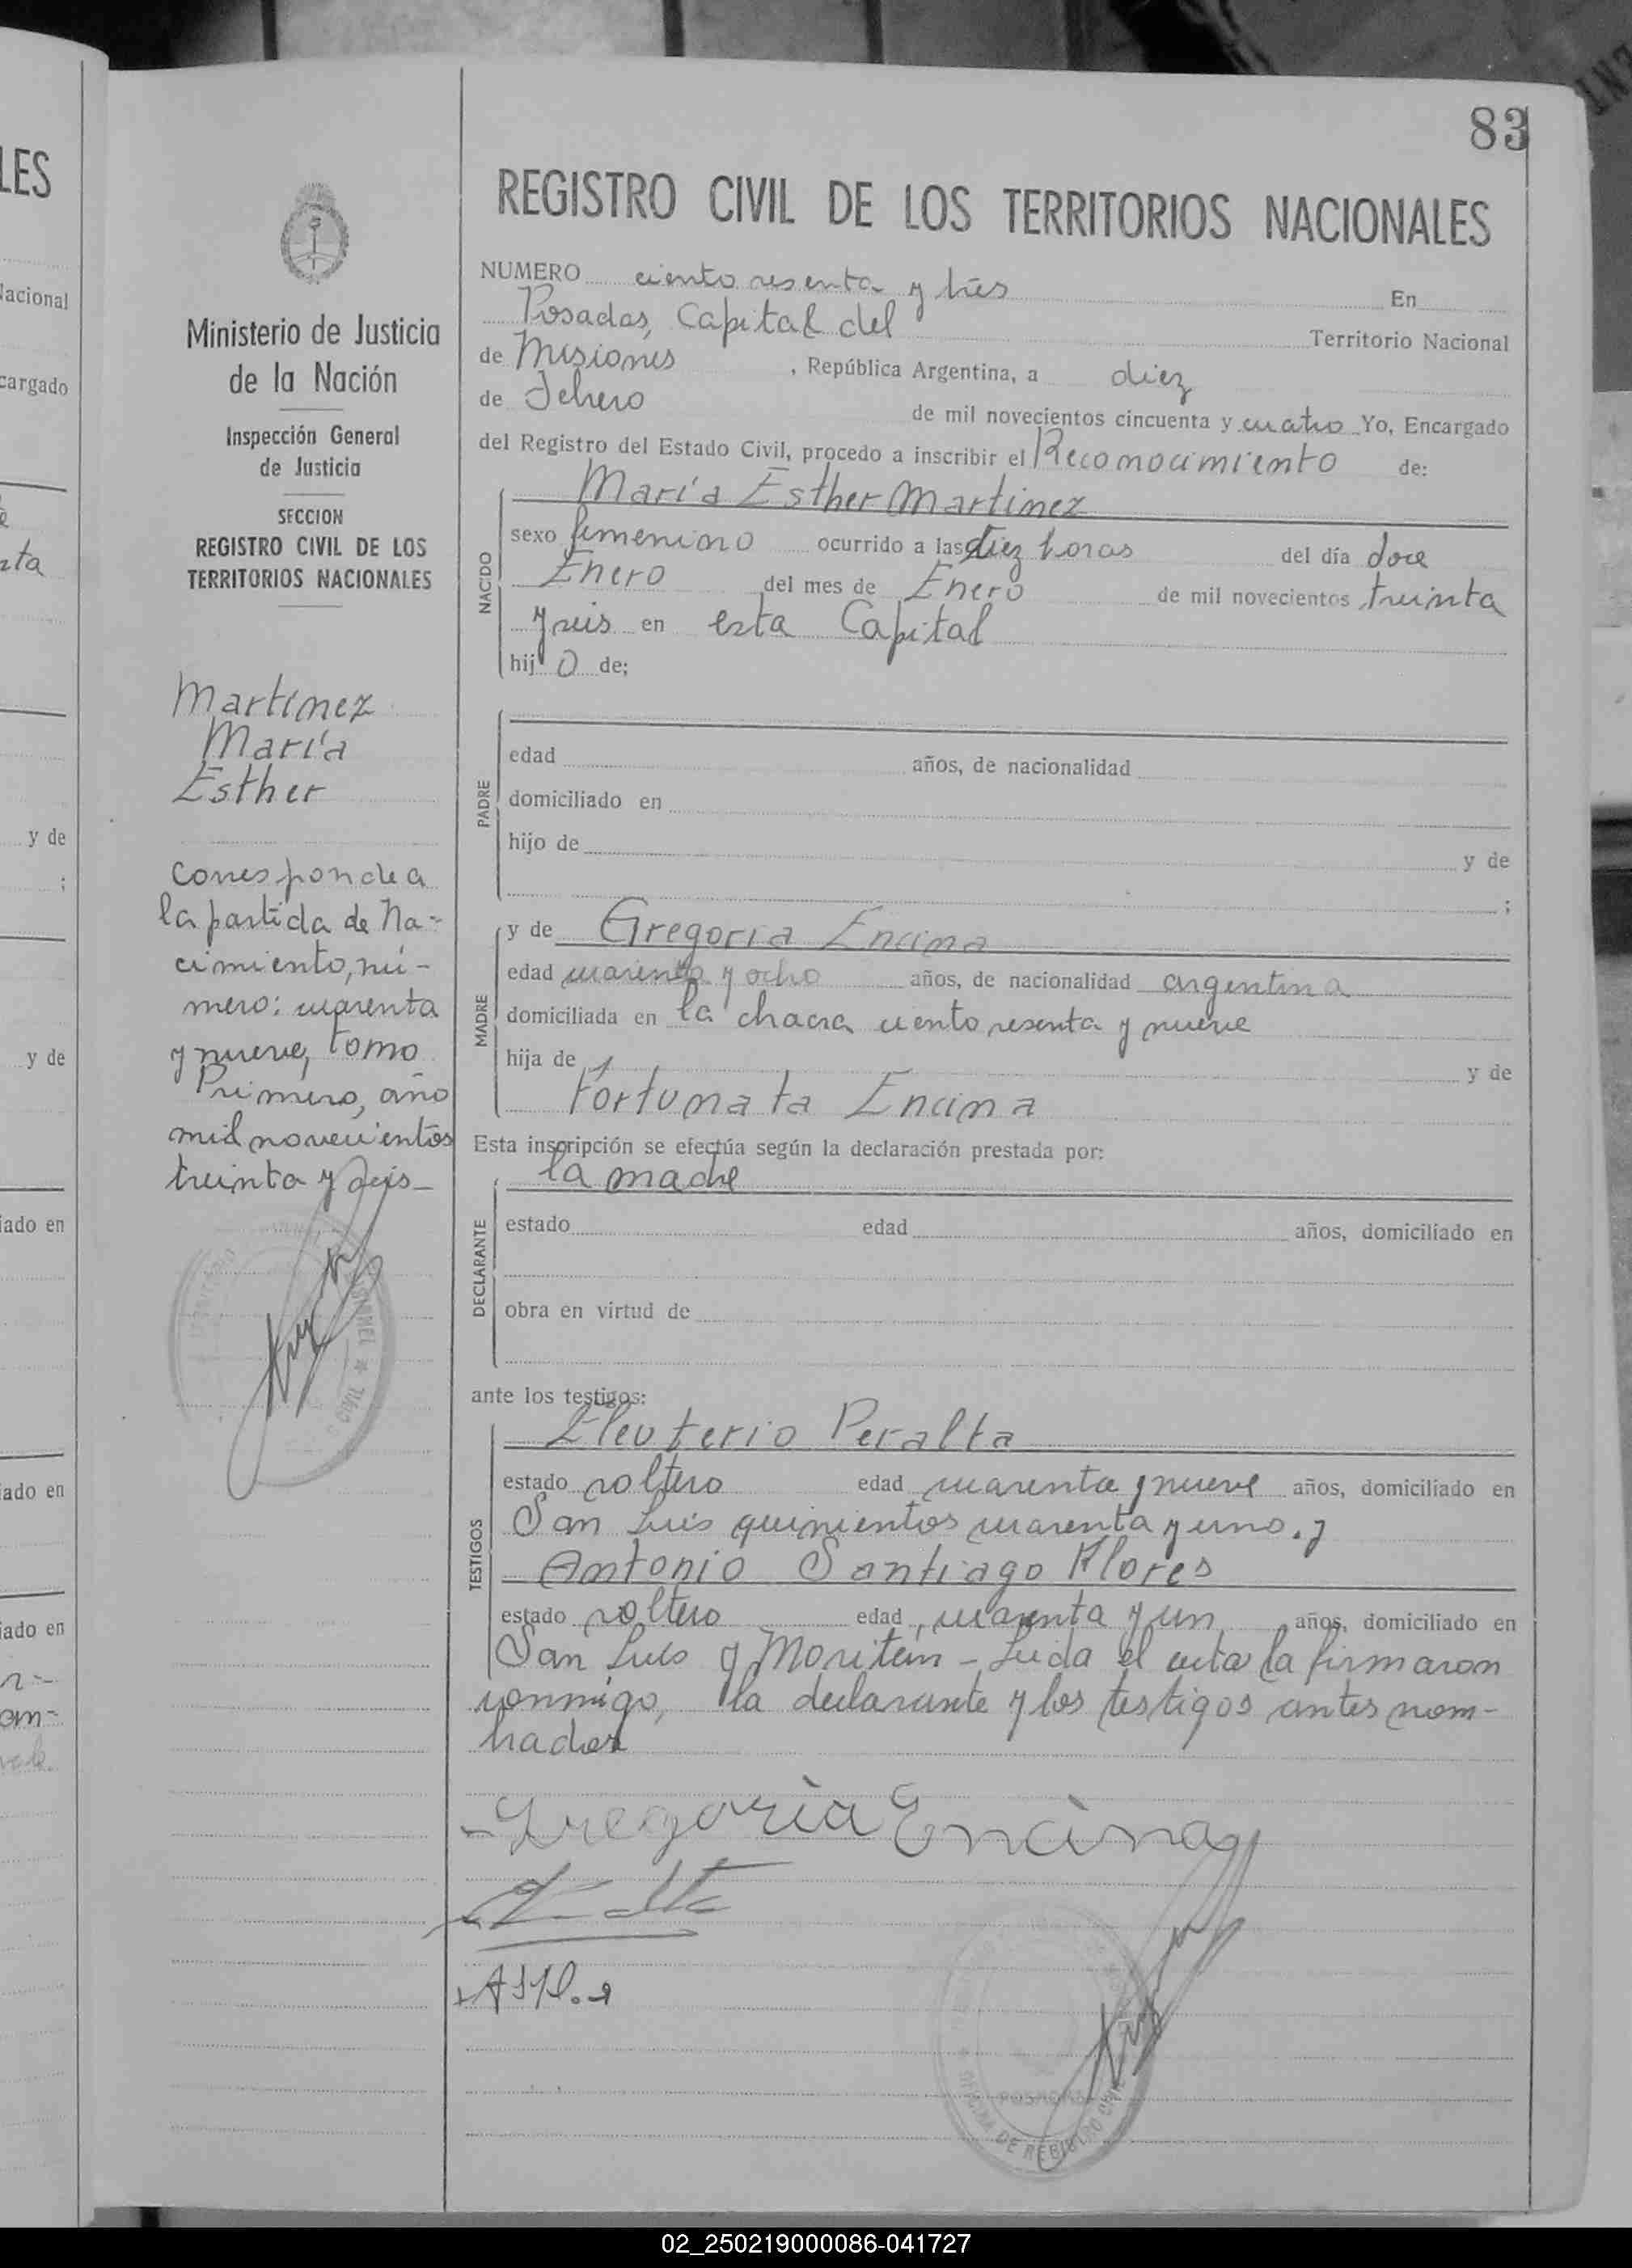 83
REGISTRO CIVIL DE LOS TERRITORIOS NACIONALES
Ministerio de Justicia
de la Nación
Inspección General
de Justicia
SECCION
REGISTRO CIVIL DE LOS
TERRITORIOS NACIONALES
Martínez
María
Esther
Corresponde a
la partida de Na-
cimiento, nú-
mero: cuarenta
y nueve, tomo
Primero, año
mil novecientos
treinta y seis_
NUMERO ciento sesenta y tres En
Posadas, Capital del Territorio Nacional
de Misiones, República Argentina, a diez
de Febrero de mil novecientos cincuenta y cuatro Yo, Encargado
del Registro del Estado Civil, procedo a inscribir el Reconocimiento de:
María Esther Martinez
NACIDO
sexo femenino ocurrido a las diez horas del día doce
Enero del mes de Enero de mil novecientos treinta
y seis en esta Capital
hij o de;
PADRE
edad años, de nacionalidad
domiciliado en
hijo de y de
;
MADRE
y de Gregoria Encina
edad cuarenta y ocho años, de nacionalidad argentina
domiciliada en la chacra ciento sesenta y nueve
hija de y de
Fortunata Encina
Esta inscripción se efectúa según la declaración prestada por:
la madre
DECLARANTE
estado edad años, domiciliado en
obra en virtud de
ante los testigos:
TESTIGOS
Eleuterio Peralta
estado soltero edad cuarenta y nueve años, domiciliado en
San Luis quinientos cuarenta y uno. y
Antonio Santiago Flores
estado soltero edad cuarenta y un años, domiciliado en
San Luis y - Leida el acta la firmaron
conmigo, la declarante y los testigos antes nom-
brados
Gregoria Encina
POSADAS
OFICINA DE REGISTRO CIVIL
02_250219000086-041727